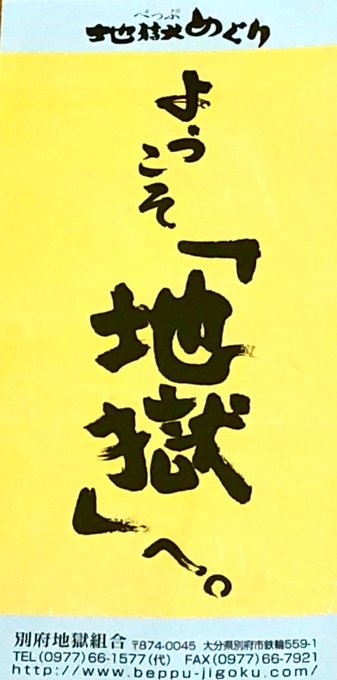 べっぷ
地獄めぐり
ようこそ
「地獄」へ。
別府地獄組合 〒874-0045 大分県別府市鉄輪559-1
TEL(0977)66-1577(代) FAX(0977)66-7921
http://www.beppu-jigoku.com/